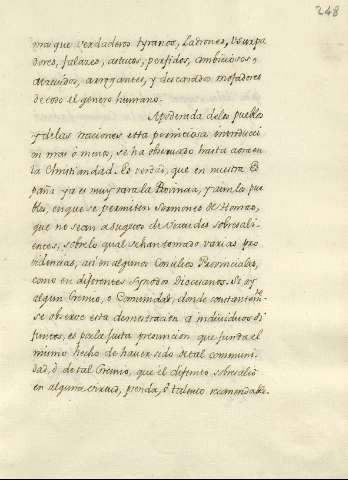 248
mas que verdaderos tyranos, Ladrones, Usurpa
dores, falazes, astutos, perfidos, ambiciosos,
atrevidos, arrogantes, y descarados mofadores
de todo el genero humano.
Apoderada de los pueblos
y de las naciones esta perniciosa introducci
on mas ô menos, se ha observado hasta aora en
la Christiandad. Es verdad, que en nuestra Es
paña ya es muy rara la Provincia, y aun lo pue
blo, en que se permiten Sermones de Honras,
que no sean a sugetos de Virtudes sobresali-
entes, sobre lo qual se han tomado varias pro
videncias, asi en algunos Concilios Provinciales,
como en diferentes Synodos Diocesanos. Si ay
algun Gremio, o Comunidad, donde constantem.te
se observe esta demostracion a individuos di
funtos, es por la justa presuncion que funda el
mismo hecho de haver sido de tal comuni-
dad, ô de tal Gremio, que el difunto sobresaliô
en alguna virtud, prenda, ô talento recomendable.